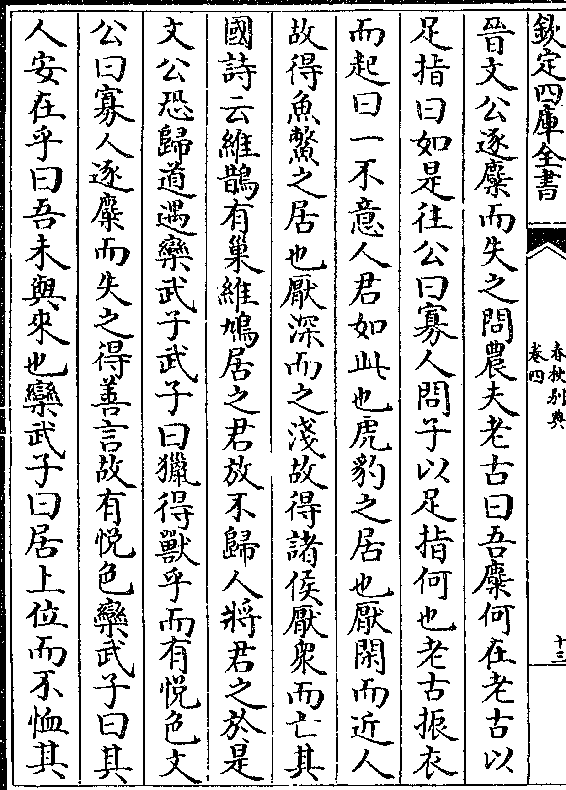 欽定四庫全書
春秋别典
卷四
十三
晉文公逐麋而失之問農夫老古曰吾麋何在老古以
足指曰如是往公曰寡人問子以足指何也老古振衣
而起曰一不意人君如此也虎豹之居也厭閑而近人
故得魚鱉之居也厭深而之淺故得諸侯厭衆而亡其
國詩云維鵲有巢維鳩居之君放不歸人將君之於是
文公恐歸道遇欒武子武子曰獵得獸乎而有悦色文
公曰寡人逐麋而失之得善言故有悦色欒武子曰其
人安在乎曰吾未與來也欒武子曰居上位而不恤其